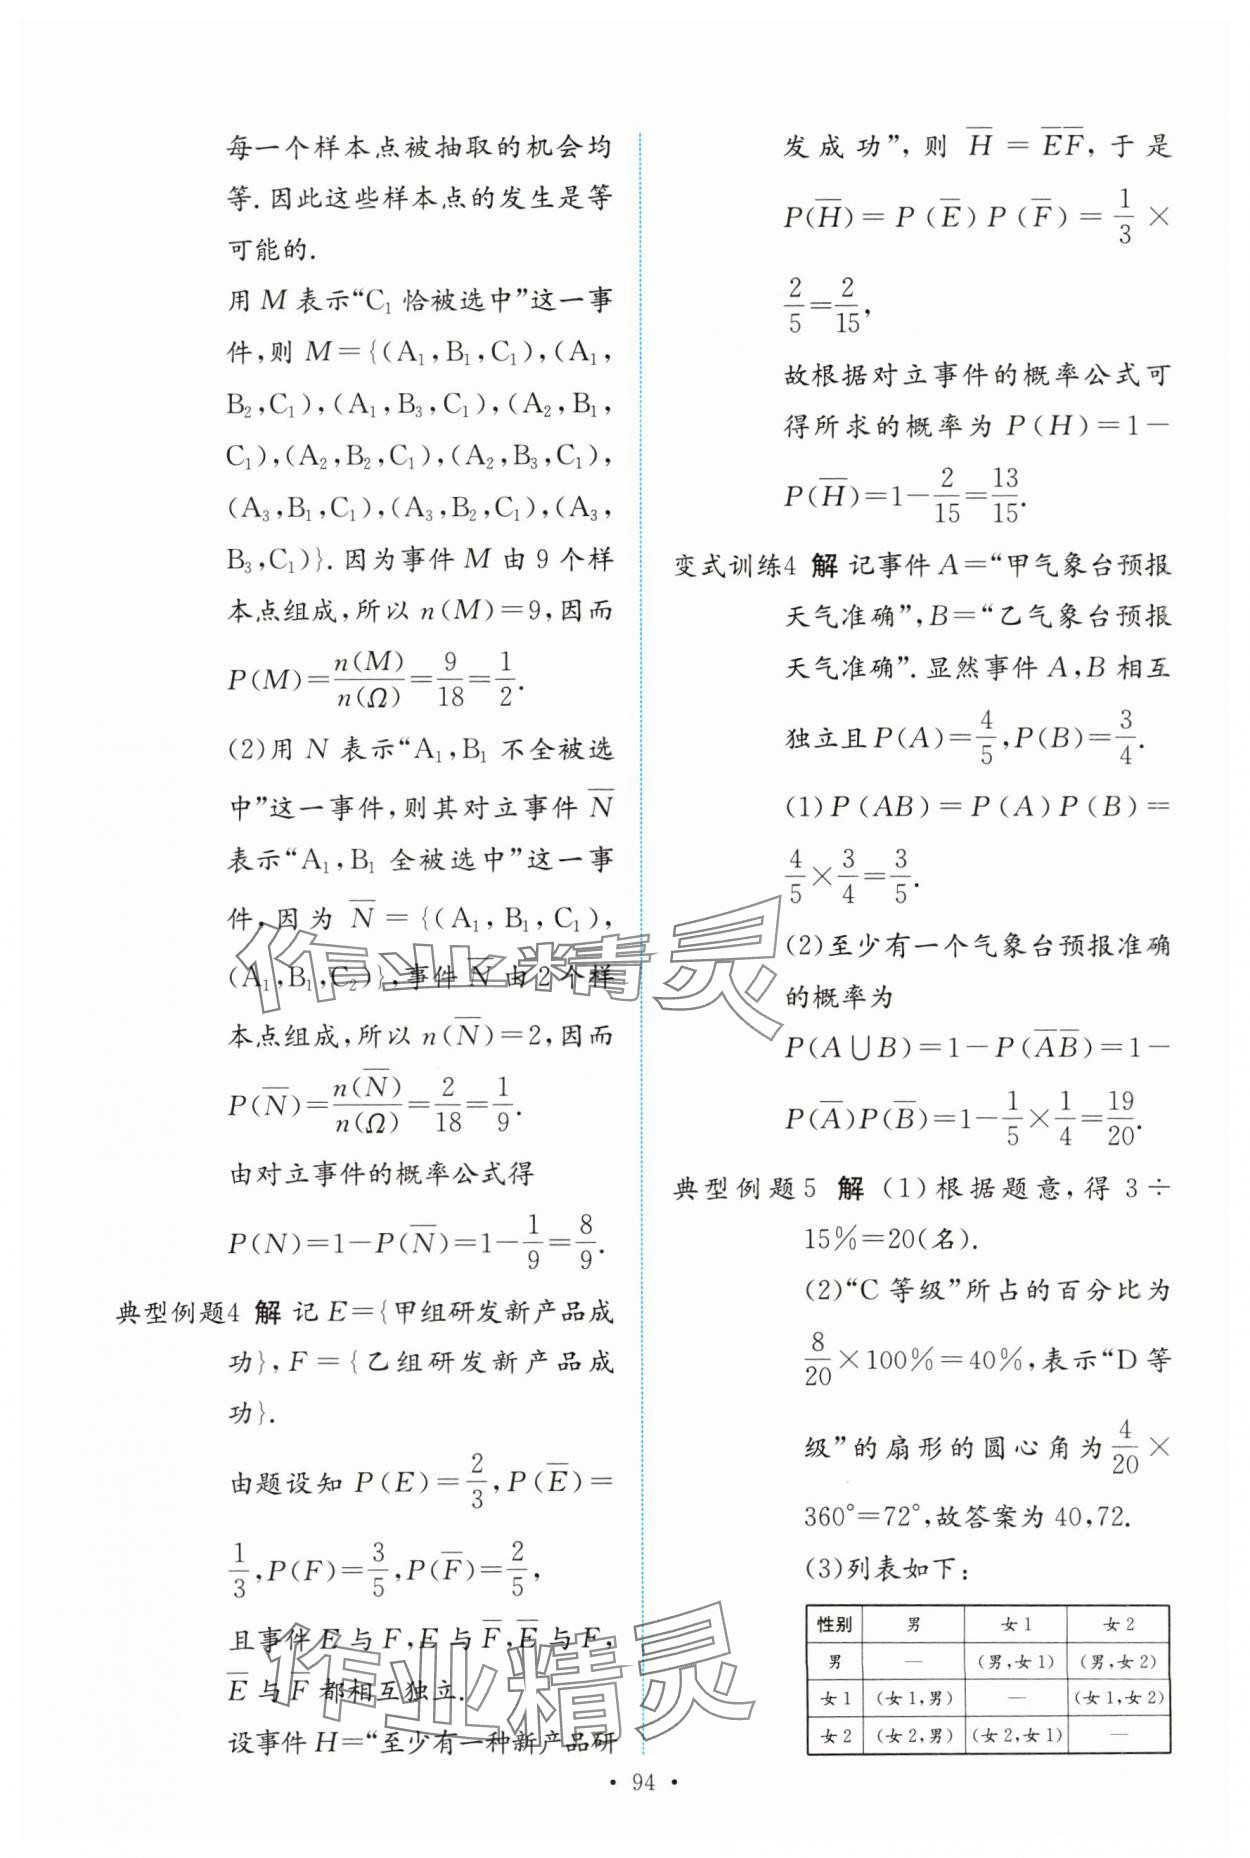 每一个样本点被抽取的机会均
等.因此这些样本点的发生是等
可能的.
用 M 表示“C₁ 恰被选中”这一事
件,则 M={(A₁,B₁,C₁),(A₁,
B₂,C₁),(A₁,B₃,C₁),(A₂,B₁,
C₁),(A₂,B₂,C₁),(A₂,B₃,C₁),
(A₃,B₁,C₁),(A₃,B₂,C₁),(A₃,
B₃,C₁)}.因为事件 M 由 9 个样
本点组成,所以 n(M)=9,因而
P(M)=n(M)/n(Ω)=9/18=1/2.
(2)用 N 表示“A₁,B₁ 不全被选
中”这一事件,则其对立事件 N̅
表示“A₁,B₁ 全被选中”这一事
件,因为 N̅={(A₁,B₁,C₁),
(A₁,B₁,C₂)},事件 N̅ 由 2 个样
本点组成,所以 n(N̅)=2,因而
P(N̅)=n(N̅)/n(Ω)=2/18=1/9.
由对立事件的概率公式得
P(N)=1-P(N̅)=1-1/9=8/9.
典型例题4 解 记 E={甲组研发新产品成
功},F={乙组研发新产品成
功}.
由题设知 P(E)=2/3,P(E̅)=
1/3,P(F)=3/5,P(F̅)=2/5,
且事件 E 与 F,E 与 F̅,E̅ 与 F,
E̅ 与 F̅ 都相互独立.
设事件 H=“至少有一种新产品研
发成功”,则 H̅=E̅F̅,于是
P(H̅)=P(E̅)P(F̅)=1/3×
2/5=2/15,
故根据对立事件的概率公式可
得所求的概率为 P(H)=1-
P(H̅)=1-2/15=13/15.
变式训练4 解 记事件 A=“甲气象台预报
天气准确”,B=“乙气象台预报
天气准确”.显然事件 A,B 相互
独立且 P(A)=4/5,P(B)=3/4.
(1)P(AB)=P(A)P(B)=
4/5×3/4=3/5.
(2)至少有一个气象台预报准确
的概率为
P(A∪B)=1-P(A̅B̅)=1-
P(A̅)P(B̅)=1-1/5×1/4=19/20.
典型例题5 解 (1)根据题意,得 3÷
15%=20(名).
(2)“C 等级”所占的百分比为
8/20×100%=40%,表示“D 等
级”的扇形的圆心角为 4/20×
360°=72°,故答案为 40,72.
(3)列表如下:
性别 男 女1 女2
男 — (男,女1) (男,女2)
女1 (女1,男) — (女1,女2)
女2 (女2,男) (女2,女1) —
· 94 ·
作业精灵
作业精灵